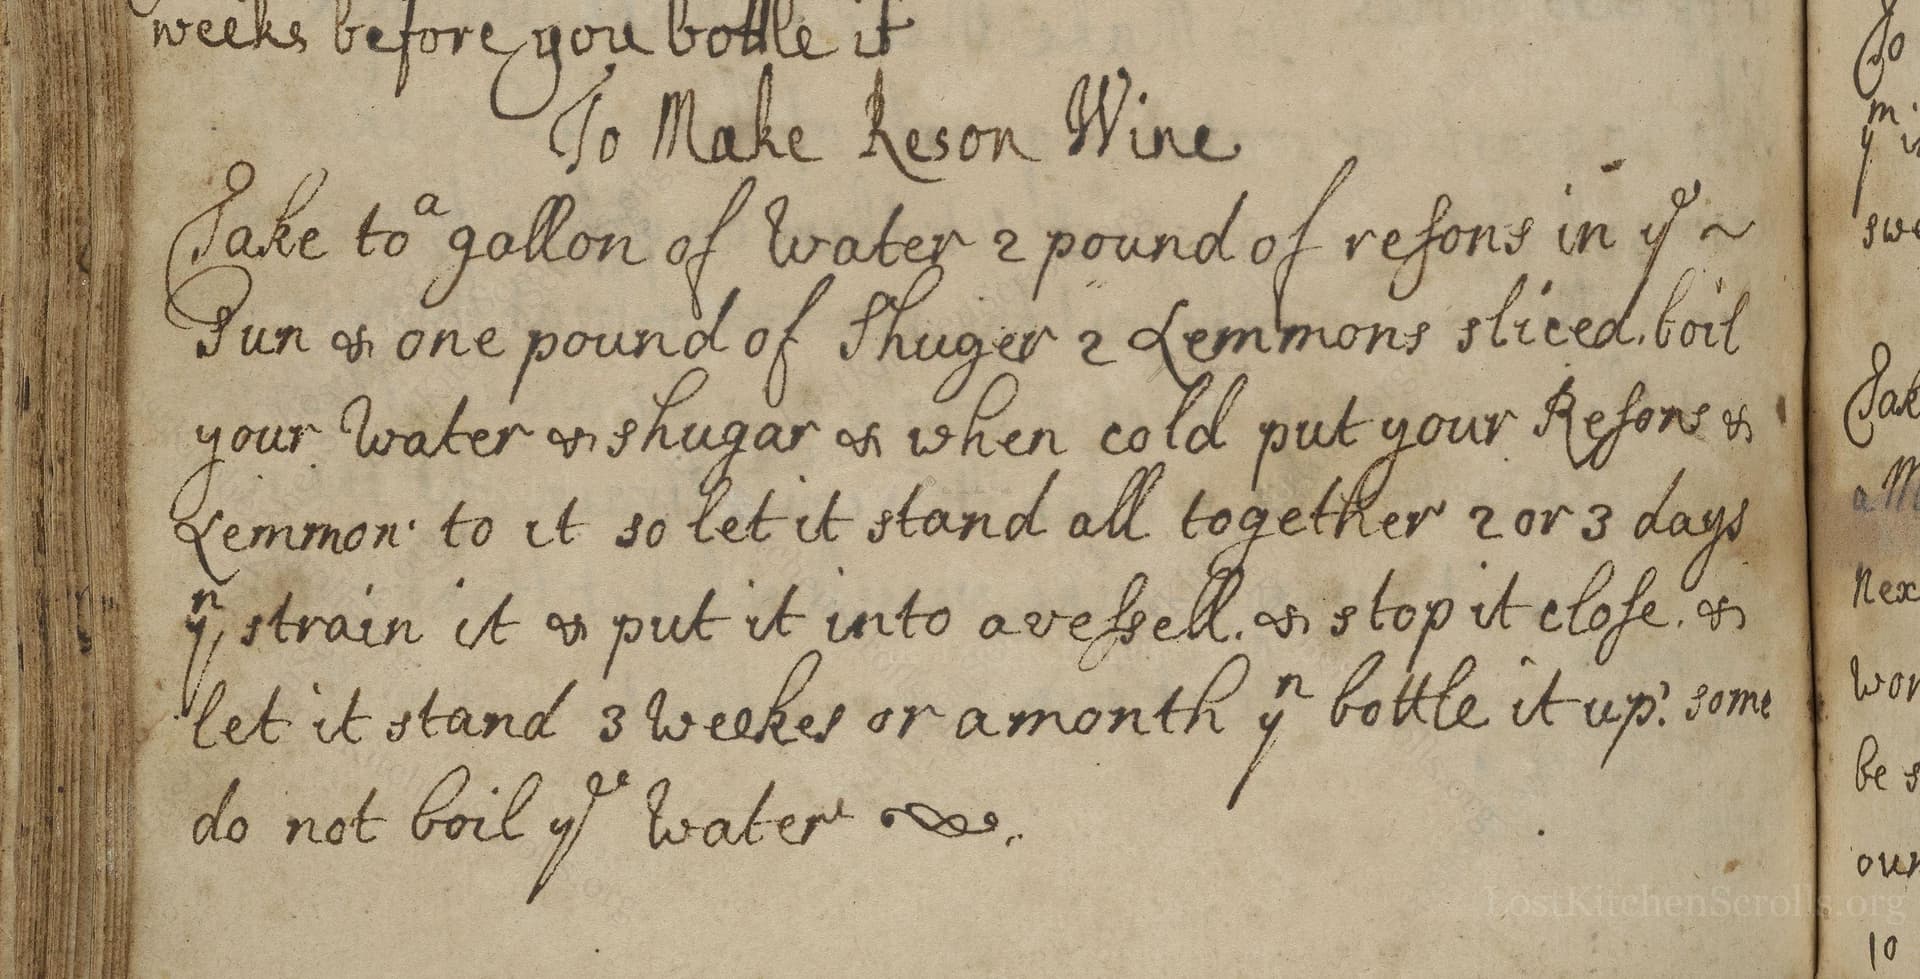 weeks before you bottle it
To Make Reson Wine
Take to a gallon of Water 2 pound of resons in ye ~
Sun & one pound of Shuger 2 Lemmons sliced. boil
your Water & shugar & when cold put your Resons &
Lemmon to it so let it stand all together 2 or 3 days
yn strain it & put it into a vessell. & stop it close. &
let it stand 3 Weekes or a month yn bottle it up. some
do not boil ye Water
To
m
y
swe
Tak
a M
nex
wor
be s
our
10
LostKitchenScrolls.org